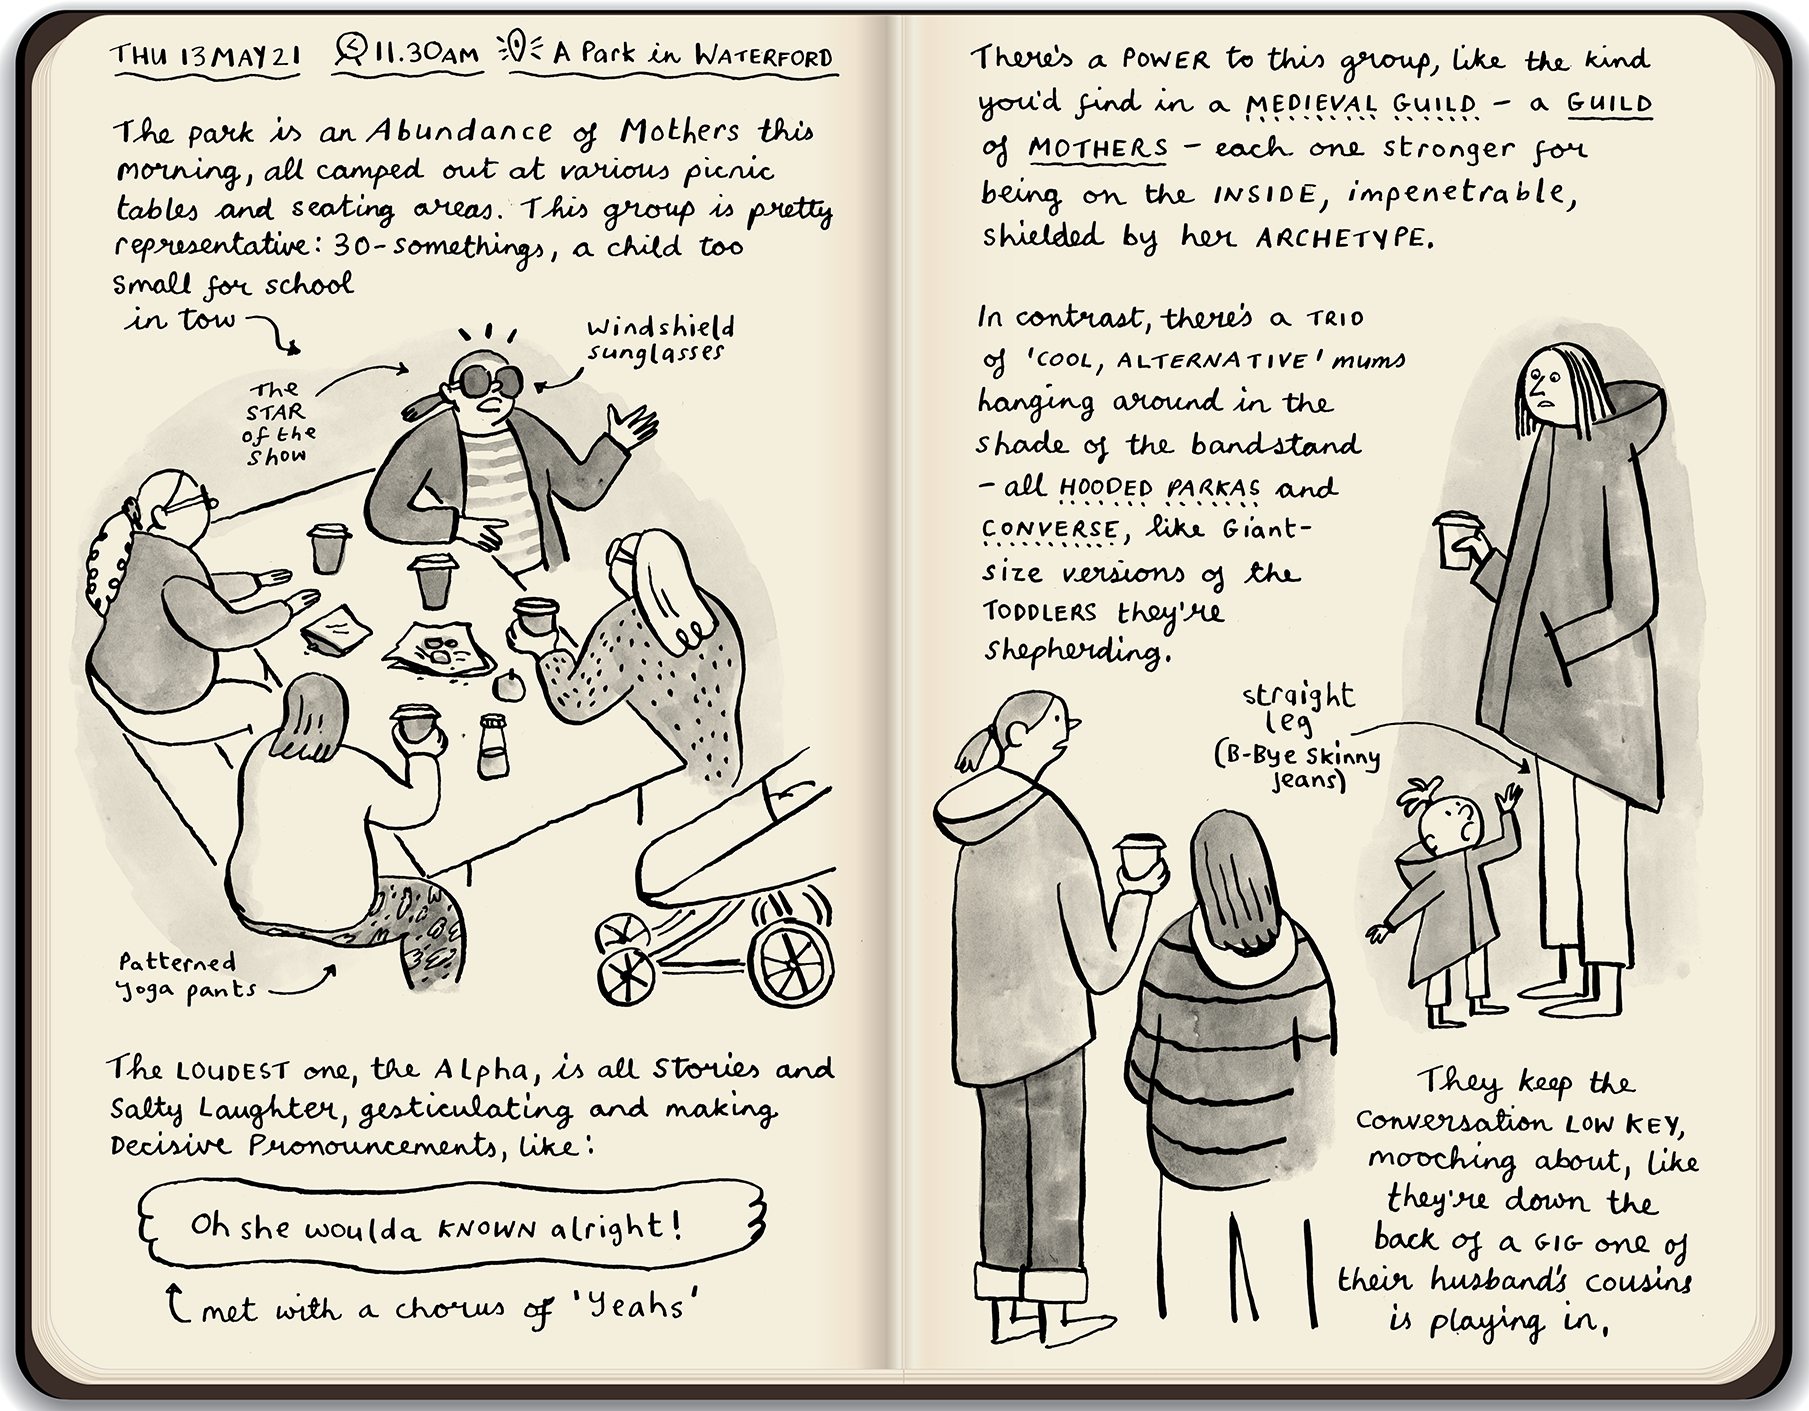 THU 13 MAY 21 11.30AM A Park in WATERFORD
The park is an Abundance of Mothers this
morning, all camped out at various picnic
tables and seating areas. This group is pretty
representative: 30-somethings, a child too
small for school
in tow
The
STAR
of the
Show
Windshield
sunglasses
Patterned
yoga pants
The LOUDEST one, the Alpha, is all Stories and
Salty Laughter, gesticulating and making
Decisive Pronouncements, like:
Oh she woulda KNOWN alright!
met with a chorus of 'Yeahs'
There's a POWER to this group, like the kind
you'd find in a MEDIEVAL GUILD – a GUILD
of MOTHERS – each one stronger for
being on the INSIDE, impenetrable,
shielded by her ARCHETYPE.
In contrast, there's a TRIO
of 'COOL, ALTERNATIVE' mums
hanging around in the
shade of the bandstand
– all HOODED PARKAS and
CONVERSE, like Giant-
size versions of the
TODDLERS they're
shepherding.
straight
leg
(B-Bye Skinny
jeans)
They keep the
Conversation LOW KEY,
mooching about, like
they're down the
back of a GIG one of
their husband's cousins
is playing in,